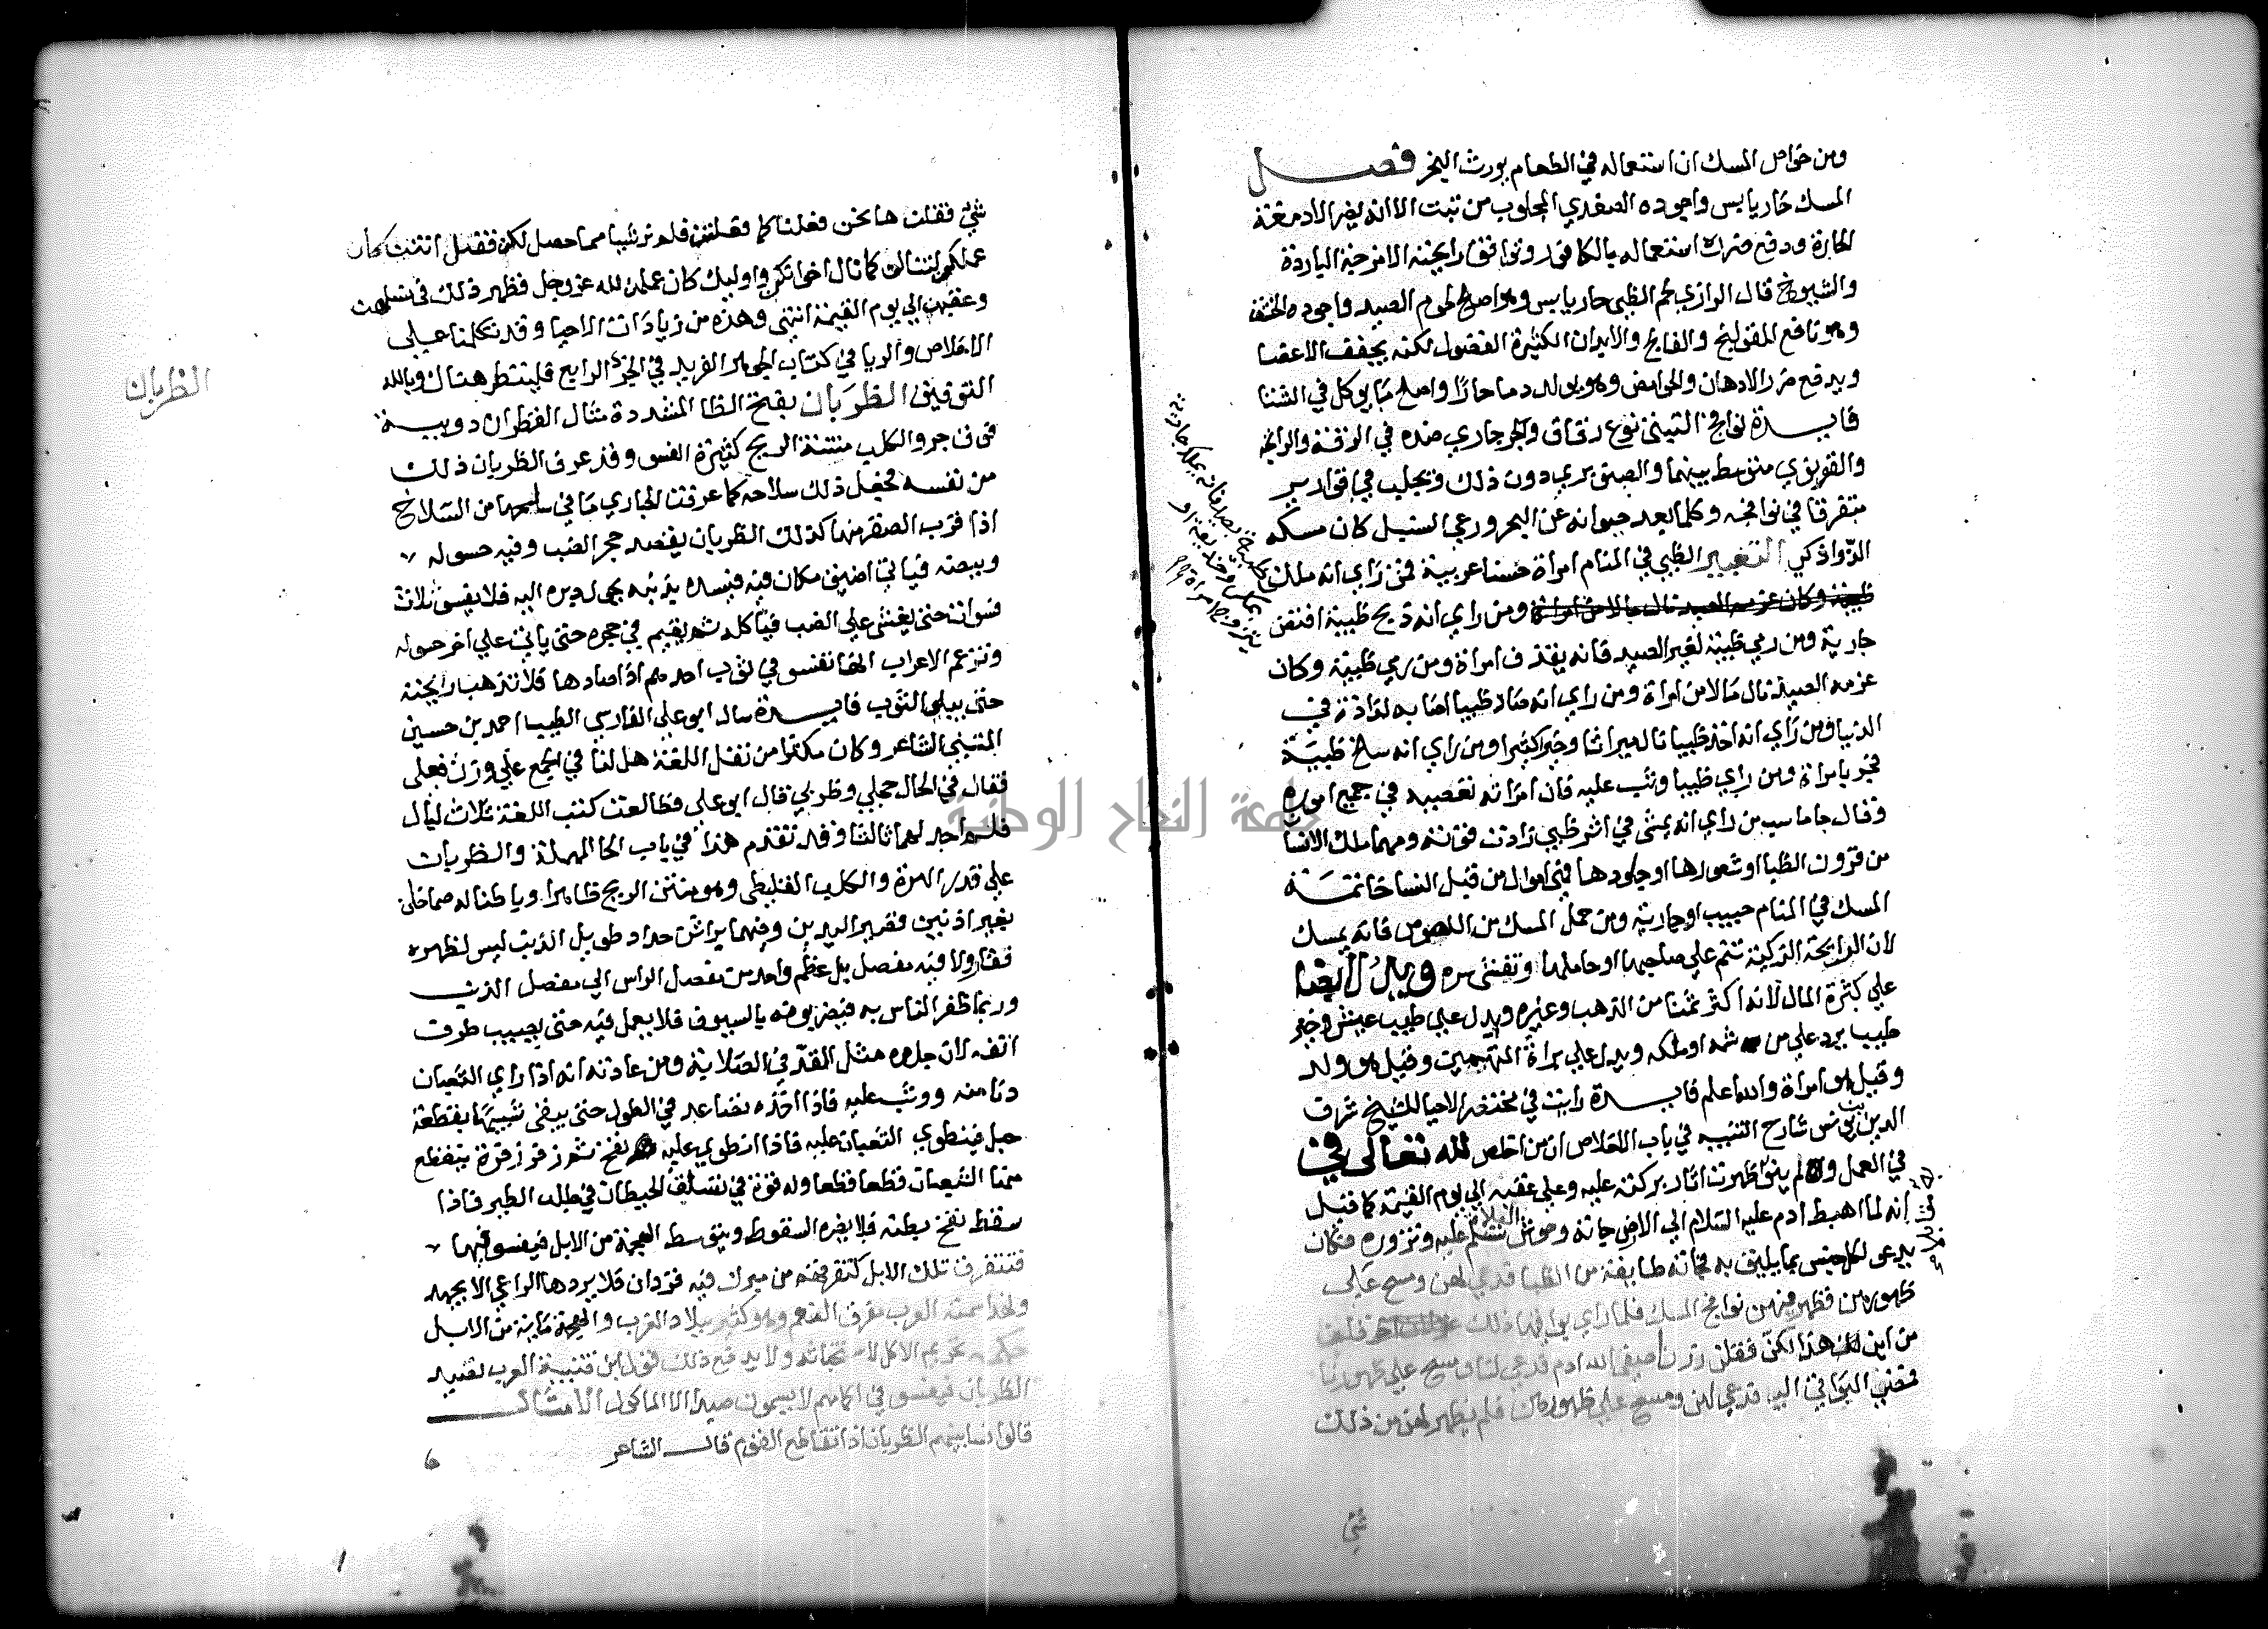 ومن خواص المسك ان استعماله في الطعام يورث البخر فصل
المسك حار يابس واجوده الصغدي المجلوب من تبت الا انه يضر الادمغة
الحارة ودفع ضرره استعماله بالكافور وتوافق رايحته الامزجة الباردة
والشيوخ قال الرازي لحم الظبي حار يابس وهو اصلح لحوم الصيد واجوده الخشف
وهو نافع للقولنج والفالج والابدان الكثيرة الفضول لكنه يجفف الاعضا
ويدفع ضرر الادهان والحوامض وهو يولد دما حارا واصلح ما يوكل في الشتا
فايدة نوافج التبتي نوع دقاق والجرجاري ضده في الرقة والرايحة
والقوينوي متوسط بينهما والصنوبري دون ذلك ويجلب في قوارير
متفرقا في نوافجه وكلما بعد حيوانه عن البحر ورعي السنبل كان مسكه
الدواذكي التعبير الظبي في المنام امراة حسنا عربية فمن راي انه ملك
ظبية وكان عزمه الصيد نال مالا من امراة ومن راي انه ذبح ظبية افتض
جارية ومن رمي ظبية لغير الصيد فانه يقذف امراة ومن رمي ظبية وكان
عزمه الصيد نال مالا من امراة ومن راي انه صاد ظبيا اصابه لذاذة في
الدنيا ومن راي انه اخذ ظبيا نال ميراثا وخيرا كثيرا ومن راي انه سلخ ظبية
فجر بامراة ومن راي ظبيا وثب عليه فان امراته تعصيه في جميع اموره
وقال جاماسب من راي انه يمشي في اثر ظبي زادت قوته ومهما ملك الانسا
من قرون الظبا او شعورها او جلودها فهي اموال من قبل النسا خاتمة
المسك في المنام حبيب او جارية ومن حمل المسك من اللصوص فانه يمسك
لان الرايحة الذكية تنم علي صاحبها او حاملها وتفشي سره ويدل ايضا
علي كثرة المال لانه اكثر ثمنا من الذهب وغيره ويدل علي طيب عيش وخبر
طيب يرد علي من شمه او ملكه ويدل علي براة المتهمين وقيل هو ولد
وقيل هو امراة والله اعلم فايدة رايت في مختصر الاحيا للشيخ شرف
الدين بن يونس شارح التنبيه في باب الاخلاص ان من اخلص لله تعالى في
في العمل وان لم ينو ظهرت اثار بركته عليه وعلي عقبه الي يوم القيمة كما قيل
انه لما اهبط ادم عليه السلام الي الارض جاته وحوش الفلا تسلم عليه وتزوره فكان
يدعو لكل جنس بما يليق به فجاته طايفة من الظبا فدعي لهن ومسح علي
ظهورهن فظهر منهن نوافج المسك فلما راي بواقيها ذلك
من اين لكن هذا لكن فقلن زرنا صفي الله ادم فدعي لنا ومسح علي ظهورنا
فمضي البواقي اليه فدعي لهن ومسح علي ظهورهن فلم يظهر لهن من ذلك
شي
شي فقلن ها نحن فعلنا كما فعلتن فلم نر شيا مما حصل لكن فقيل انتن كان
عملكن لتنالن كما نال اخوانكن واوليك كان عملهن لله عز وجل فظهر ذلك في نسلهن
وعقبهن الي يوم القيمة انتهي وهذه من زيادات الاحيا وقد تكلمنا علي
الاخلاص والريا في كتاب الجوهر الفريد في الجزء الرابع فلينتظر هناك وبالله
التوفيق الظربان بفتح الظا المشددة مثال القطران دويبة
الظربان
فوق جرو الكلب منتنة الريح كثيرة الفسو وقد عرف الظربان ذلك
من نفسه فجعل ذلك سلاحه كما عرفت الحباري ما في سلحها من السلاح
اذا قرب الصقر منها كذلك الظربان يقصد حجر الضب وفيه حسوله
وبيضه فياتي اضيق مكان فيه فيسده بذنبه ويحول دبره اليه فلا يفسو ثلاث
فسوات حتى يغشي علي الضب فيأكله ثم يقيم في حجره حتى ياتي علي اخر حسوله
وتزعم الاعراب انها تفسو في ثوب احدهم اذا صادها فلا تذهب رايحته
حتى يبلي الثوب فايدة سال ابو علي الفارسي الطيب احمد بن حسين
المتنبي الشاعر وكان مكثرا من نقل اللغة هل لنا في الجمع علي وزن فعلى
فقال في الحال حجلي وظربي قال ابو علي فطالعت كتب اللغة ثلاث ليال
فلم اجد لهما ثالثا وقد تقدم هذا في باب الحا المهملة والظربان
علي قدر الهرة والكلب القلطي وهو منتن الريح ظاهرا وباطنا له صماخان
بغير اذنين وقصير اليدين وفيهما براثن حداد طويل الذنب ليس لظهره
فقار ولا فيه مفصل بل عظم واحد من مفصل الراس الي مفصل الذنب
وربما ظفر الناس به فيضربونه بالسيوف فلا يعمل فيه حتى يصيب طرف
انفه لان جلده مثل القد في الصلابة ومن عادته انه اذا راي الثعبان
دنا منه ووثب عليه فاذا اخذه تضاعد في الطول حتى يبقى شبيها بقطعة
حبل فينطوي الثعبان عليه فاذا انطوي عليه نفخ ثم زفر زفرة يتقطع
منها الثعبان قطعا قطعا وله قوة في تسلق الحيطان في طلب الطير فاذا
سقط نفخ بطنه فلا يضره السقوط ويتوسط الهجمة من الابل فيفسو فيها
فتتفرق تلك الابل كتفرقها من مبرك فيه قردان فلا يردها الراعي الا بجهد
ولهذا سمته العرب مفرق النعم وهو كثير ببلاد العرب والهجمة ماية من الابل
حكمه تحريم الاكل لاستخباثه ولا يدفع ذلك قول ابن قتيبة العرب تصيد
الظربان فيفسو في اكمامهم لا يسمون صيدا الا الماكول الامثال
قالوا فسا بينهم الظربان اذا تقاطع القوم قال الشاعر
جامعة النجاح الوطنية